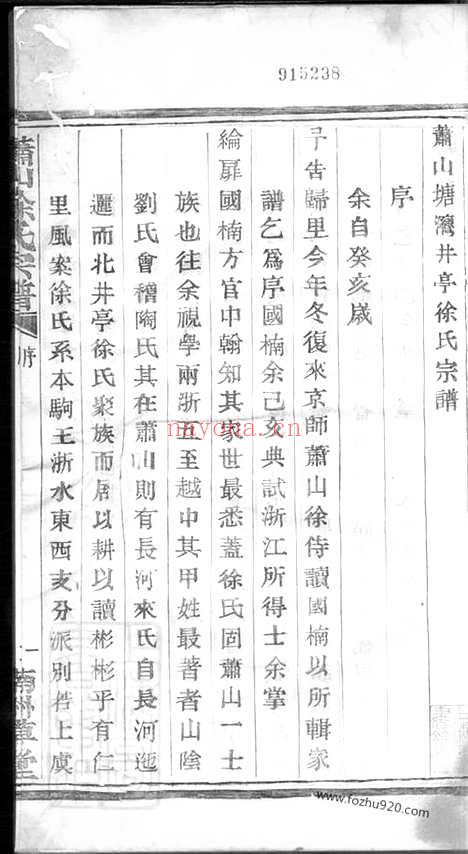 915238
蕭山塘灣井亭徐氏宗譜
序
余自癸亥歲
予告歸里今年冬復來京師蕭山徐侍讀國楠以所輯家
譜乞爲序國楠余己亥典試浙江所得士余掌
綸扉國楠方官中翰知其家世最悉蓋徐氏固蕭山一士
族也往余視學兩浙五至越中其甲姓最著者山陰
劉氏會稽陶氏其在蕭山則有長河來氏自長河迤
邐而北井亭徐氏聚族而居以耕以讀彬彬乎有仁
里風案徐氏系本駒王浙水東西支分派別若上虞
蕭山徐氏宗譜
序
一
南州草堂
nayona.cn
www.fozhu920.com